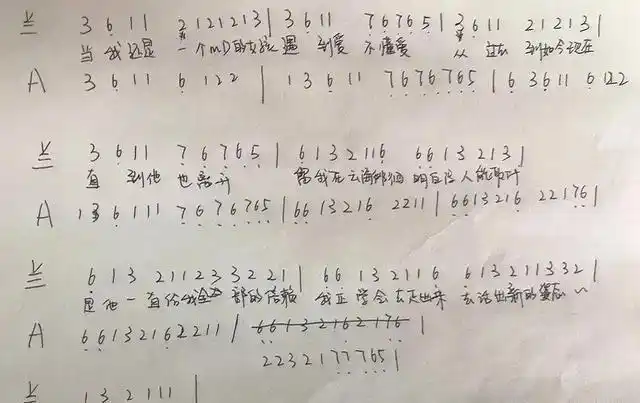 兰 3 6 1 1 2 1 2 1 2 1 3 | 3 6 1 1 7 6 7 6 5 | 3 6 1 1 2 1 2 1 3 |
当 我 还是 一个 的女孩 遇 到爱 不懂爱 从 过去 到如今现在
A 3 6 1 1 6 1 2 2 | 1 3 6 1 1 7 6 7 6 7 6 5 | 6 3 6 1 1 6 1 2 2
兰 3 6 1 1 7 6 7 6 5 | 6 1 3 2 1 1 6 6 6 1 3 2 1 3 |
直 到他 也离开 留我在云海徘徊 明白没人能
A 1 3 6 1 1 1 7 6 7 6 7 6 5 | 6 6 1 3 2 1 6 2 2 1 1 | 6 6 1 3 2 1 6 2 2 1 7 6 |
兰 6 1 3 2 1 1 2 3 3 2 2 1 | 6 6 1 3 2 1 1 6 6 1 3 2 1 1 3 3 2 |
是他一直给我全部的信赖 我 学会去走出来 去活出新的姿态
A 6 6 1 3 2 1 6 2 2 1 1 | 6 6 1 3 2 1 6 2 1 7 6 |
2 2 3 2 1 7 7 7 6 5 |
兰 1 3 2 1 1 1 |